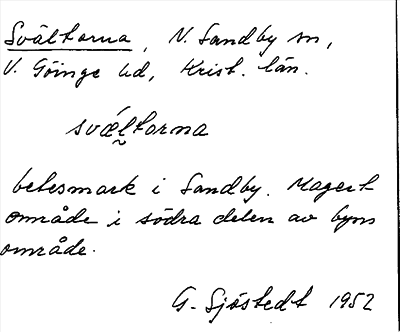 Svältorna, N. Sandby sn,
V. Göinge hd, Krist. län.
svǽl̰torna
betesmark i Sandby. Magert
område i södra delen av byns
område.
G. Sjöstedt 1952